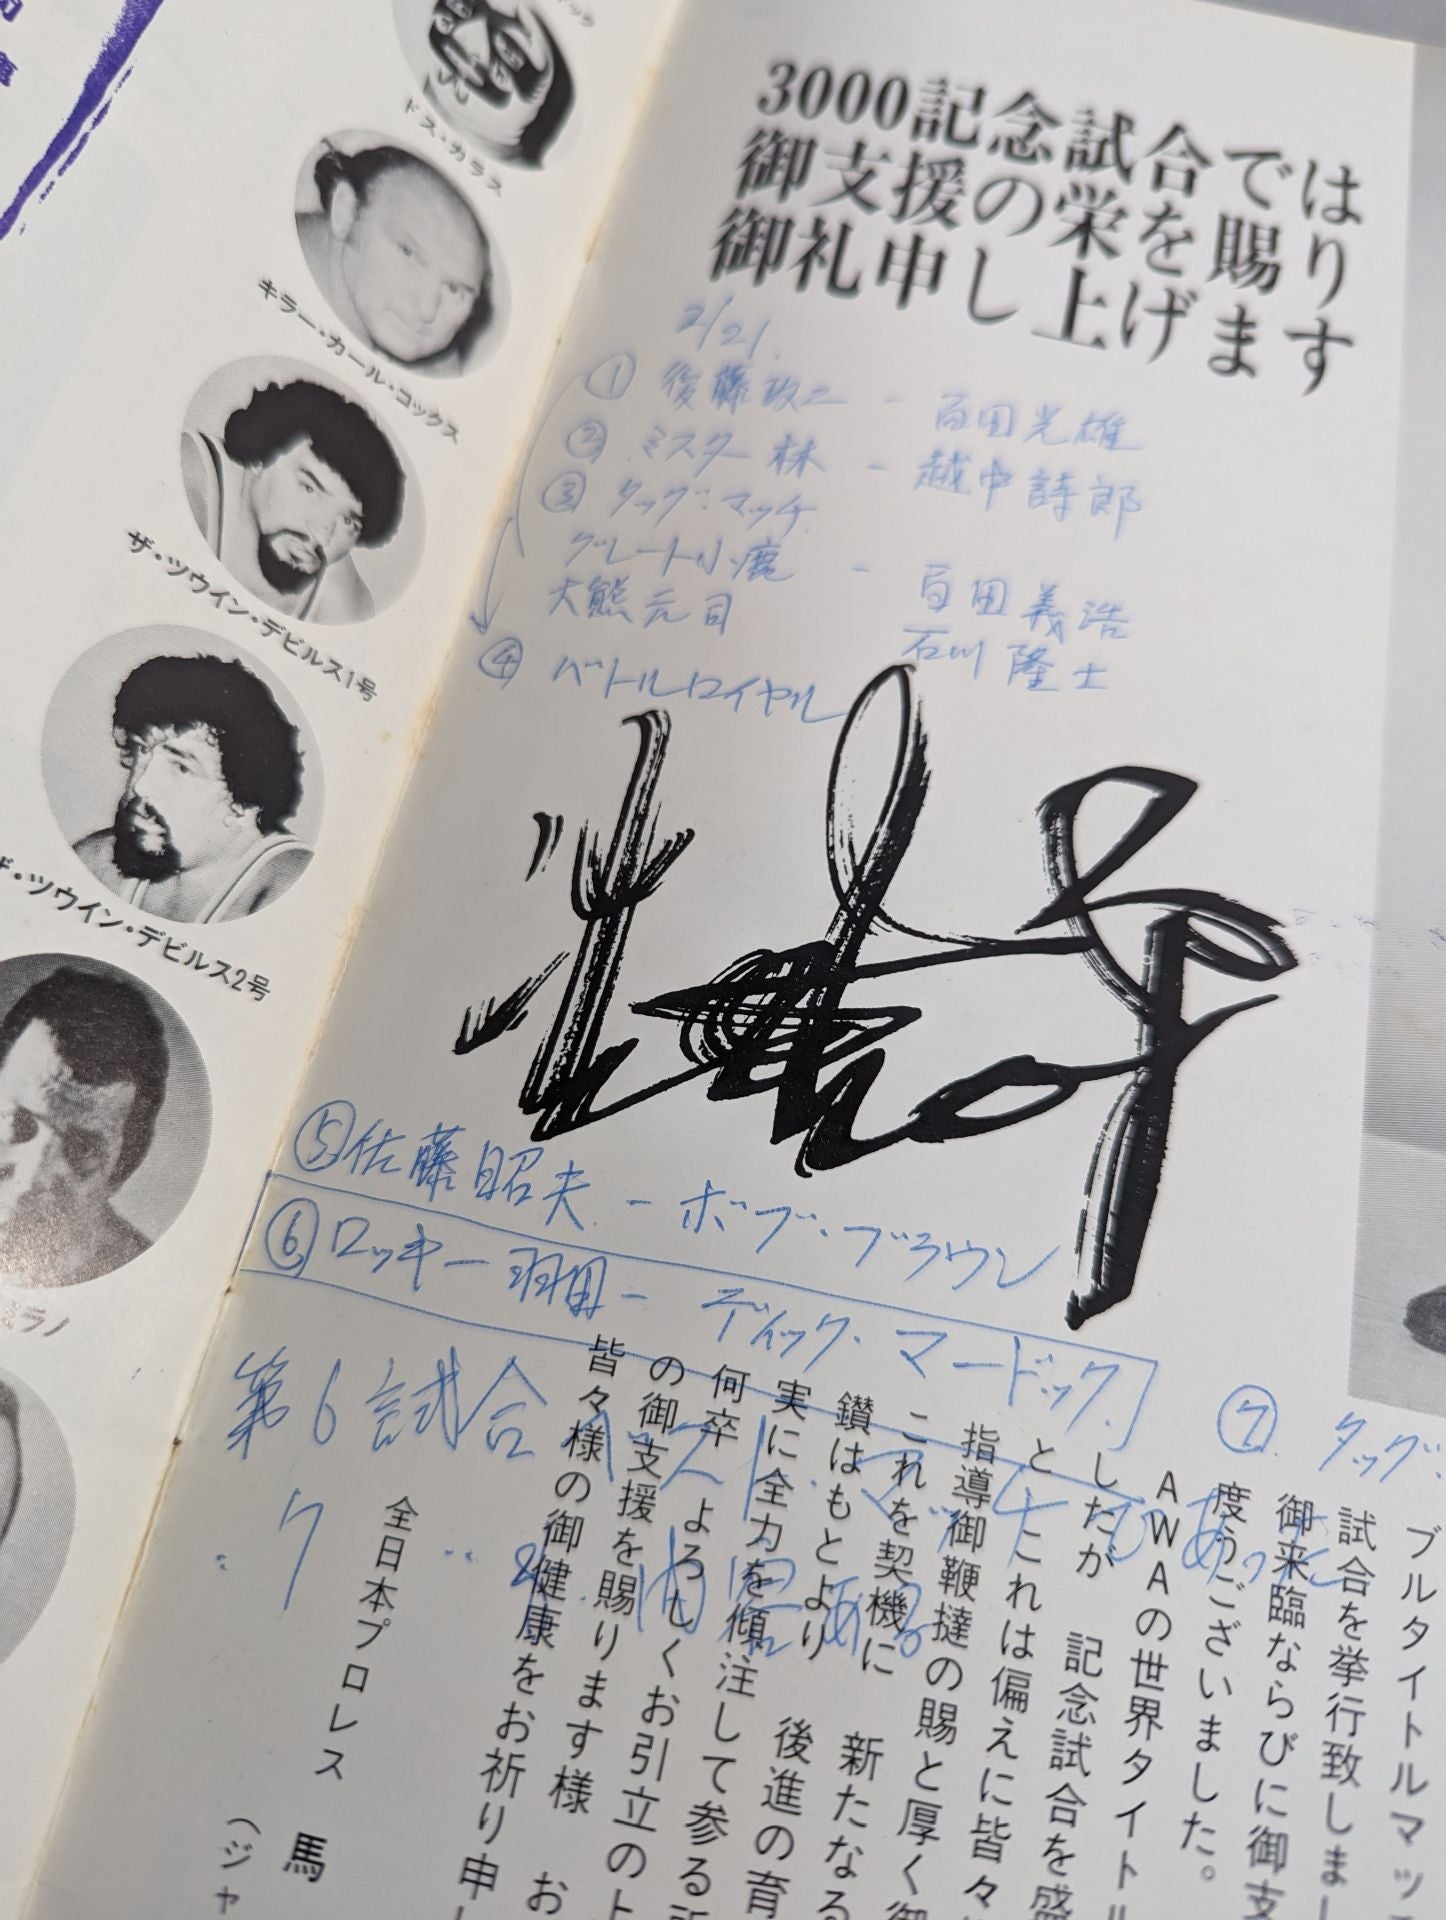 ドス・カラス
キラー・カール・コックス
ザ・ツウイン・デビルス1号
ザ・ツウイン・デビルス2号
ミラノ
3000記念試合では
御支援の栄を賜り
御礼申し上げます
2/21.
① 後藤政二 - 百田光雄
② ミスター林 - 越中詩郎
③ タッグ・マッチ
グレート小鹿 - 百田義浩
大熊元司 石川隆士
④ バトルロイヤル
⑤ 佐藤昭夫 - ボブ・ブラウン
⑥ ロッキー羽田 - ディック・マードック
⑦ タッグ・
第6試合ベスト・マッチであった
ブルタイトルマッ
試合を挙行致しまし
御来臨ならびに御支
度うございました。
AWAの世界タイトル
したが 記念試合を盛
とこれは偏えに皆々
指導御鞭撻の賜と厚く御
これを契機に 新たなる
鑚はもとより 後進の育
実に全力を傾注して参る
何卒 よろしくお引立の上
の御支援を賜ります様 お
皆々様の御健康をお祈り申し
全日本プロレス
馬
(ジャ